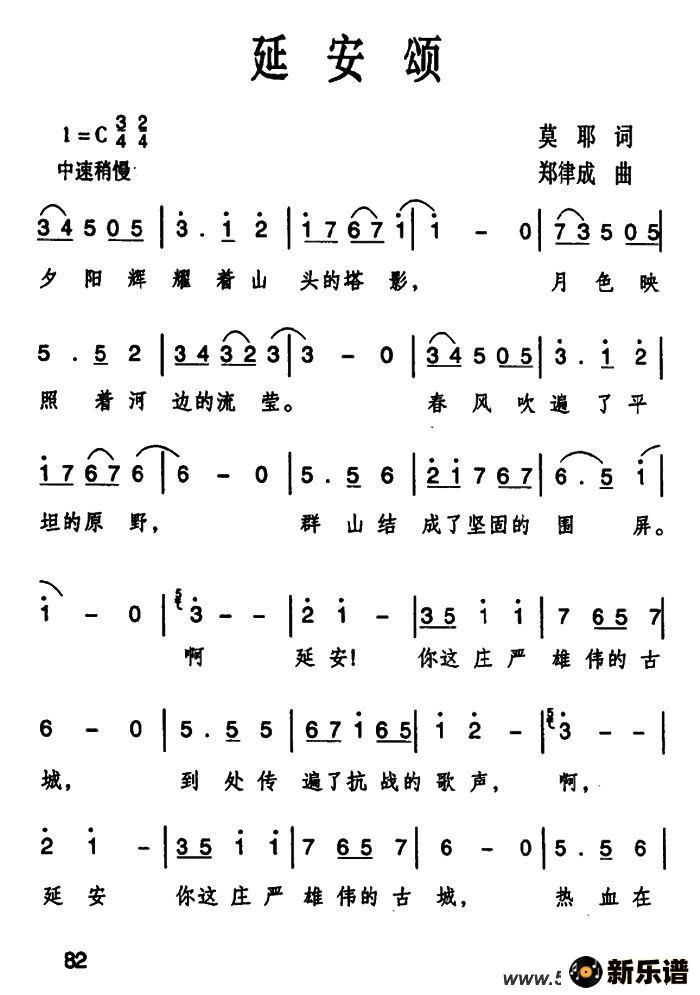 延安颂
1=C 3/4 2/4
莫耶词
中速稍慢
郑律成 曲
3 4 5 0 5 | 3 . 1 2 | 1 7 6 7 1 | 1 - 0 | 7 3 5 0 5
夕阳辉耀着山头的塔影，月色映
5 . 5 2 | 3 4 3 2 3 | 3 - 0 | 3 4 5 0 5 | 3 . 1 2
照着河边的流莹。春风吹遍了平
1 7 6 7 6 | 6 - 0 | 5 . 5 6 | 2 1 7 6 7 | 6 . 5 1
坦的原野，群山结成了坚固的围屏。
1 - 0 | 5 3 - - | 2 1 - | 3 5 1 1 | 7 6 5 7
啊延安！你这庄严雄伟的古
6 - 0 | 5 . 5 5 | 6 7 1 6 5 | 1 2 - | 5 3 - -
城，到处传遍了抗战的歌声，啊，
2 1 - | 3 5 1 1 | 7 6 5 7 | 6 - 0 | 5 . 5 6
延安你这庄严雄伟的古城，热血在
82
www.5
新乐谱